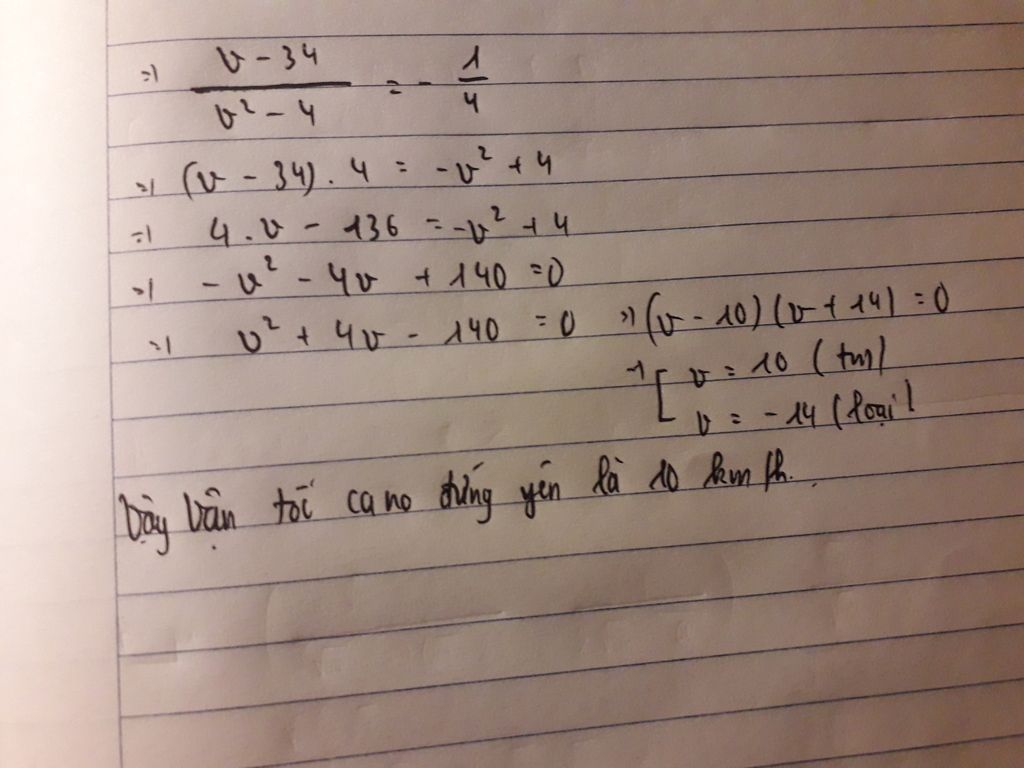 => (v - 34)/(v² - 4) = - 1/4
=> (v - 34) . 4 = -v² + 4
=> 4 . v - 136 = -v² + 4
=> - v² - 4v + 140 = 0
=> v² + 4v - 140 = 0 => (v - 10)(v + 14) = 0
=> [ v = 10 (tm)
v = -14 (loại)
Vậy vận tốc cano đứng yên là 10 km/h.